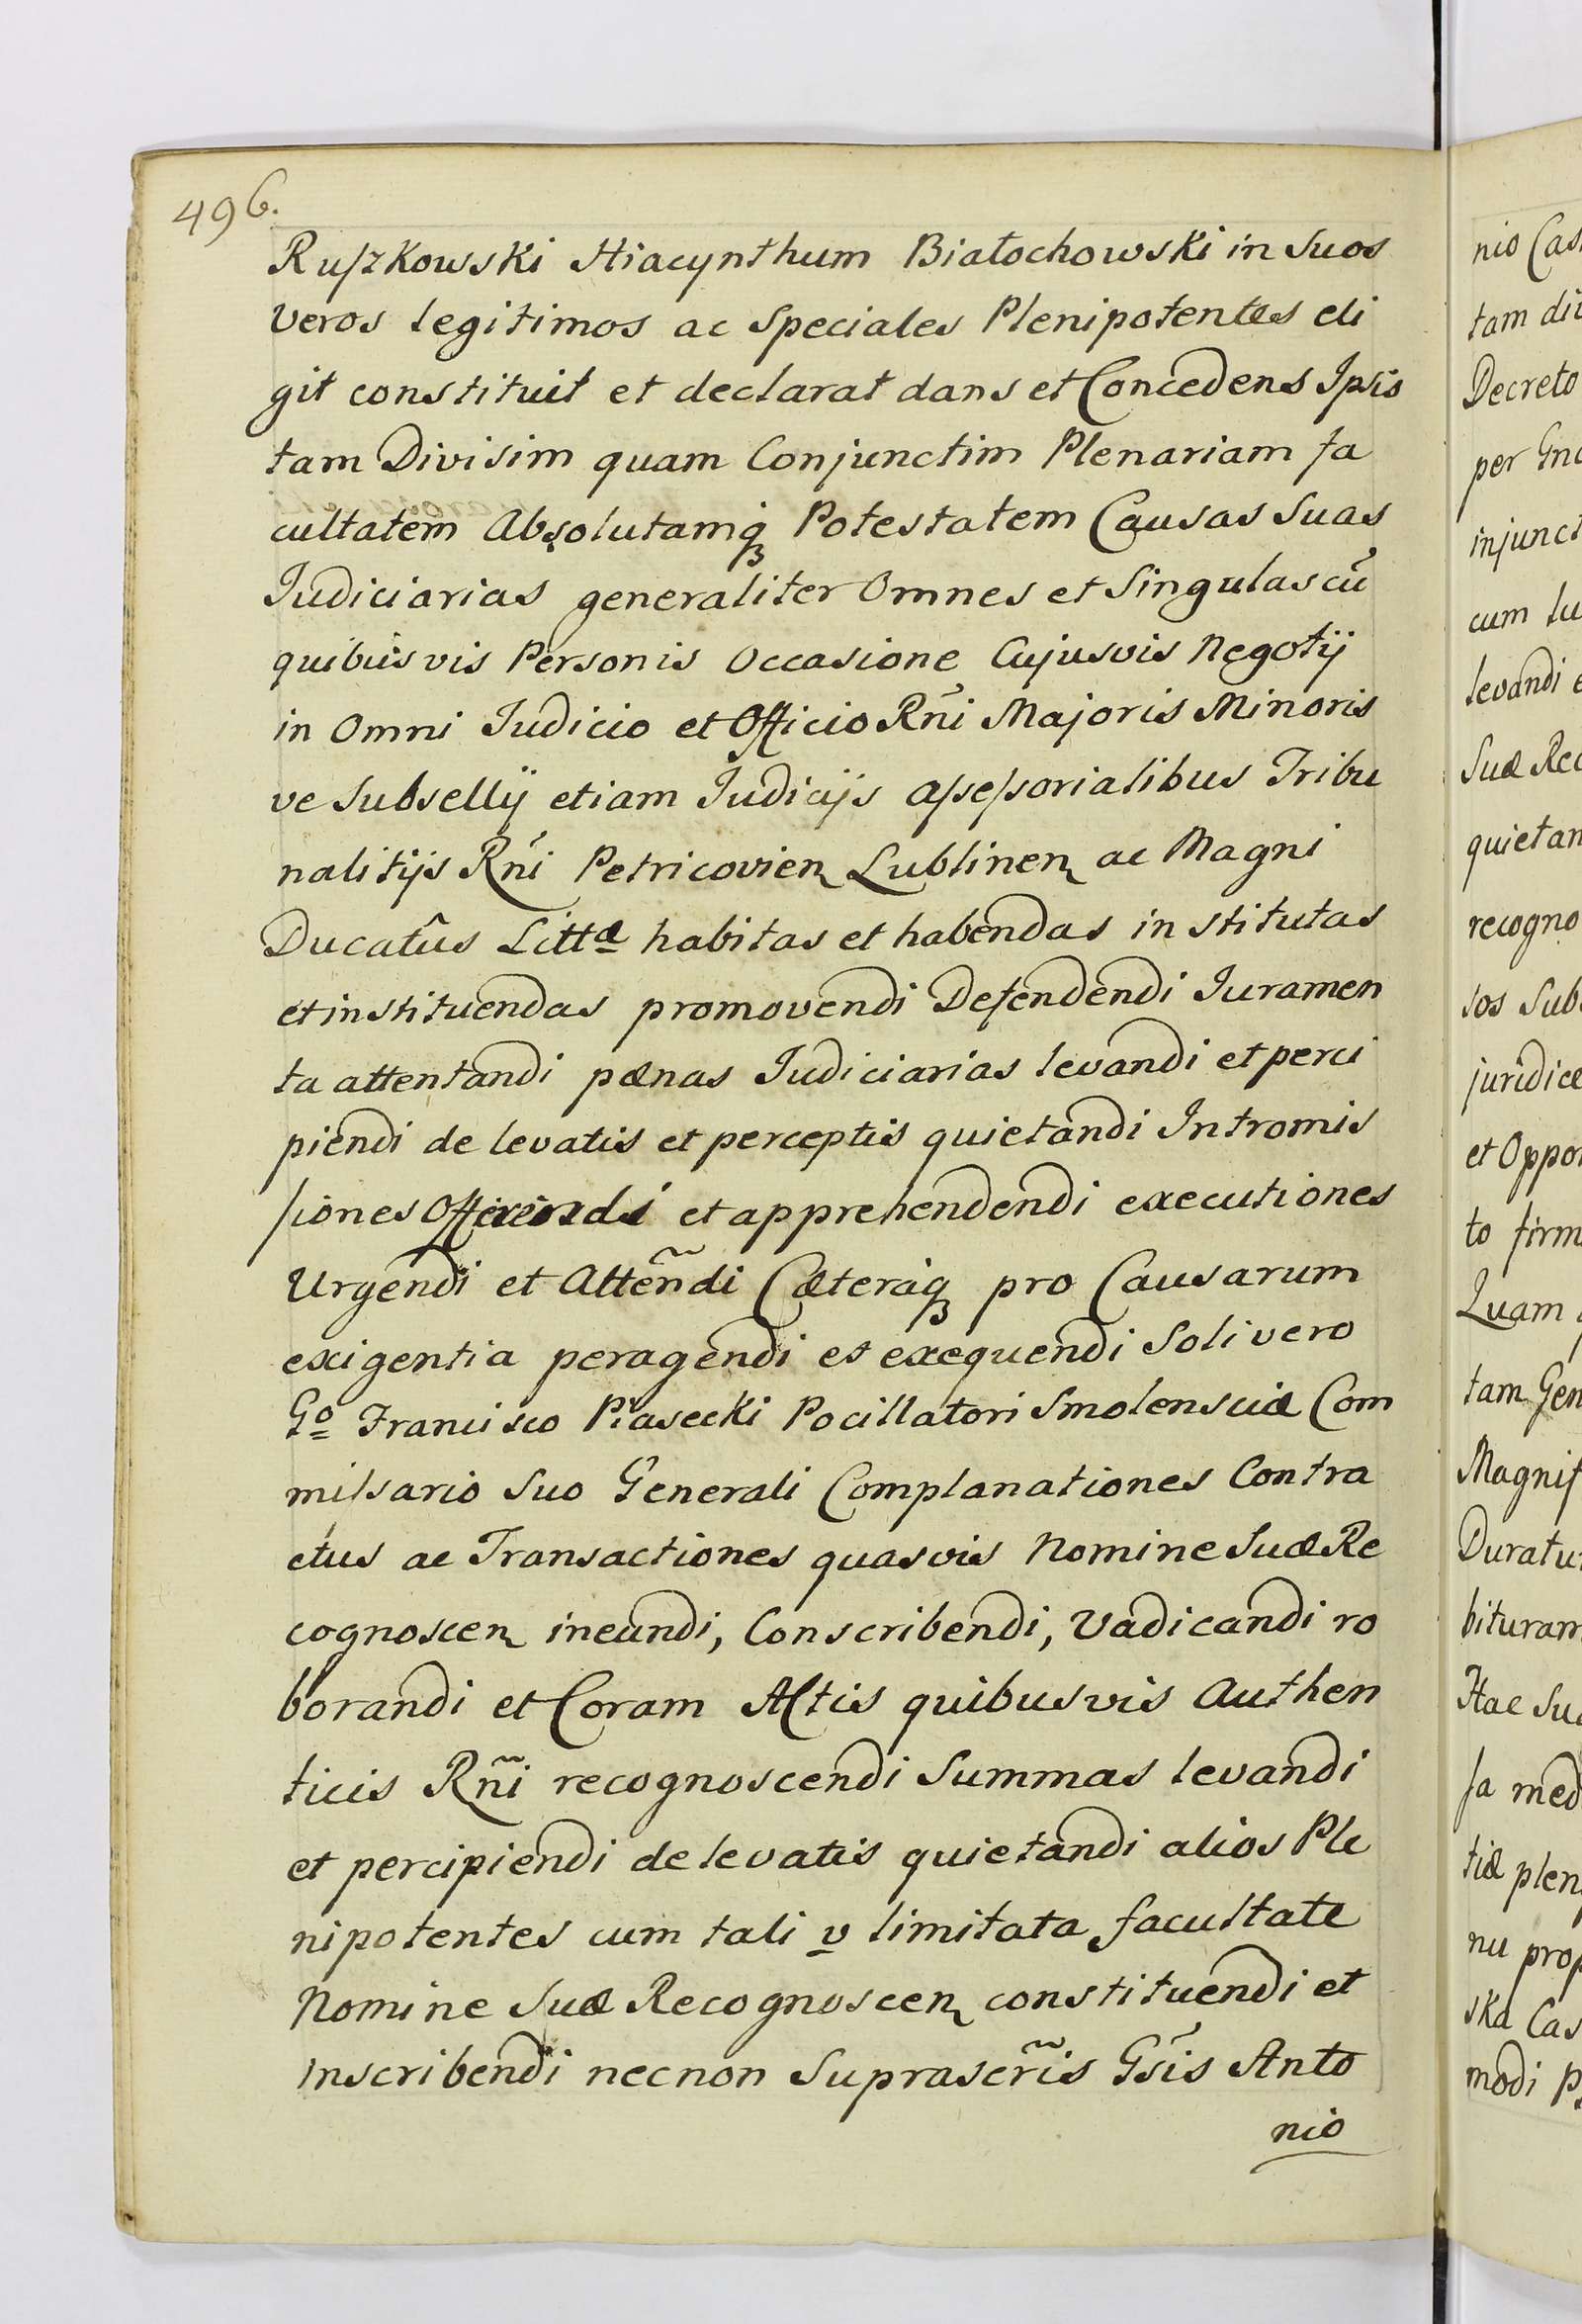 496.
Ruſzkowski Hiacynthum Białochowski in Suos
Veros legitimos ac Speciales Plenipotentes eli
git constituit et declarat dans et Concedens Ipsis
tam Divisim quam Conjunctim Plenariam fa
cultatem Absolutamq́ꝫ Potestatem Causas Suas
Judiciarias generaliter Omnes et Singulas cũ
quibusvis Personis Occasione Cujusvis Negotij
in Omni Judicio et Officio Rñi Majoris Minoris
ve Subsellij etiam Judicijs aſseſsorialibus Tribu
nalitijs Rñi Petricovien Lublinen ac Magni
Ducatûs Littæ habitas et habendas institutas
et instituendas promovendi Defendendi Juramen
ta attentandi pænas Judiciarias levandi et perci
piendi de levatis et perceptis quietandi Intromis
ſiones et apprehendendi executiones
Urgendi et Atteñdi Cæteráqꝫ pro Causarum
exigentia peragendi et exequendi Soli vero
Gº Francisco Piasecki Pocillatori Smolensciæ Com
miſsario Suo Generali Complanationes Contra
ctus ac Transactiones quasvis Nomine Suæ Re
cognoscen ineundi, Conscribendi, Vadicandi ro
borandi et Coram Actis quibusvis Authen
ticis Rñi recognoscendi Summas levandi
et percipiendi de levatis quietandi alios Ple
nipotentes cum tali v limitata facultate
Nomine Suæ Recognoscen constituendi et
inscribendi necnon Suprascr̃is Gsis Anto
nio
nio Cas
tam
Decreto
per
injunct
cum
levandi
Suæ Rec
quietan
recogno
Sub
juridice
et Oppo
to firm
Quam
tam Gen
Magnif
Duratu
bituram
Hac Su
fa med
tiæ plen
nu prop
ska Cas
modi